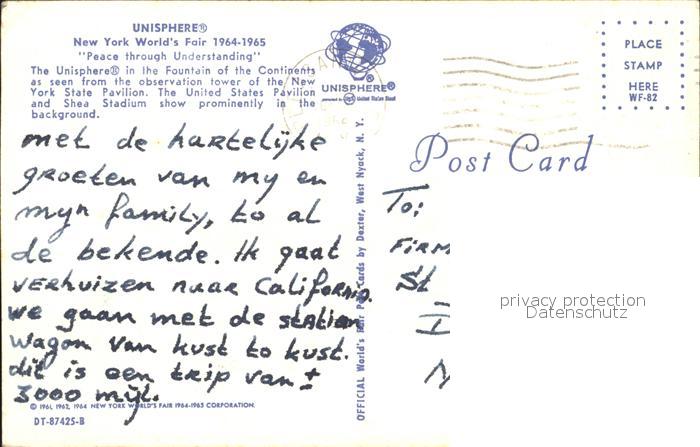 UNISPHERE®
New York World's Fair 1964-1965
"Peace through Understanding"
The Unisphere® in the Fountain of the Continents
as seen from the observation tower of the New
York State Pavilion. The United States Pavilion
and Shea Stadium show prominently in the
background.
met de hartelijke
groeten van my en
myn family, to al
de bekende. Ik gaat
verhuizen naar California.
we gaan met de station
wagon van kust to kust.
dit is een trip van ±
3000 mijl.
© 1961, 1962, 1964 NEW YORK WORLD'S FAIR 1964-1965 CORPORATION.
DT-87425-B
UNISPHERE®
presented by United States Steel
OFFICIAL World's Fair Post Cards by Dexter, West Nyack, N. Y.
PLACE
STAMP
HERE
WF-82
Post Card
To:
FIRM
St
privacy protection
Datenschutz